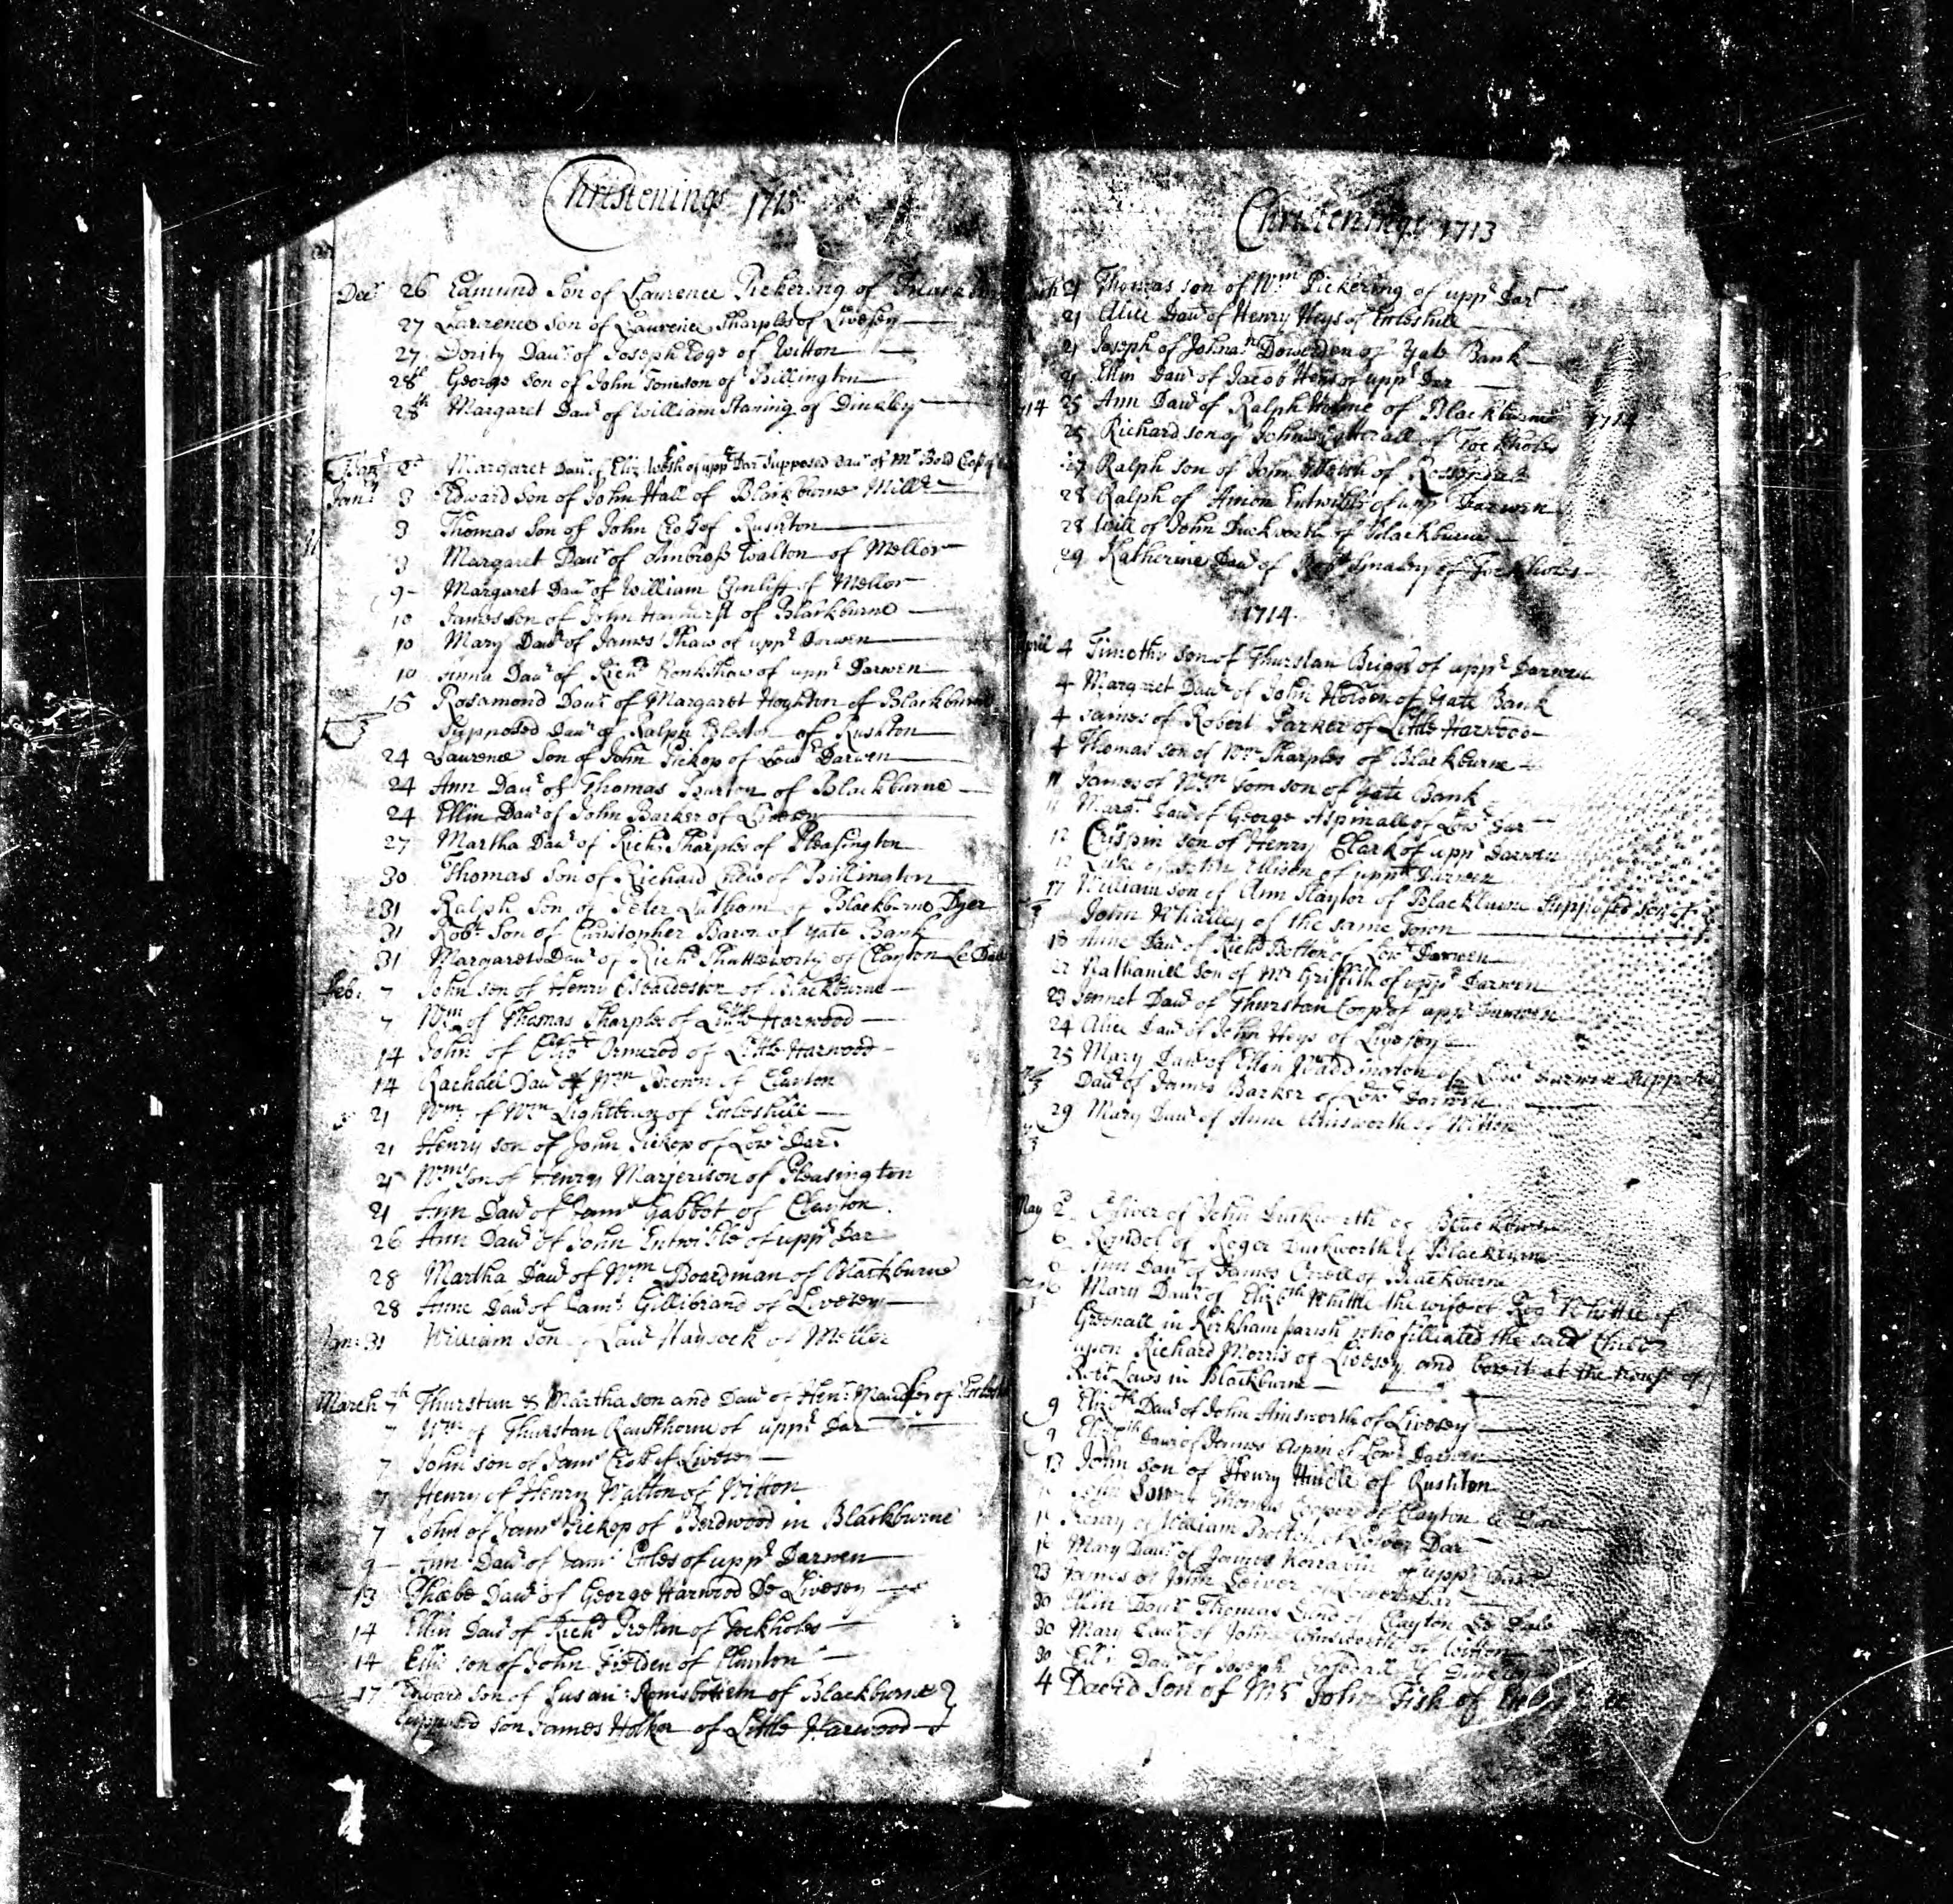 Christenings 1713
Decr 26 Edmund Son of Laurence Pickering of
27 Laurence son of Laurence Sharples of Livesey
27 Dority Daur of Joseph Edge of Witton
28th George Son of John Tomson of Billington
28th Margaret Daur of William Staning of Dinkley
Margaret Daur of Eliz of uppr Dar Supposed Daur of Mr
Janry 3 Edward Son of John Hall of Blackburne Millr
3 Thomas Son of John of Rushton
3 Margaret Daur of Ambross Walton of Mellor
9 Margaret Daur of William Cunliff of Mellor
10 James son of John Hayhurst of Blackburne
10 Mary Daur of James Shaw of uppr Darwen
10 Anna Daur of Richd Ronkshaw of uppr Darwen
16 Rosamond Daur of Margaret Hoghton of Blackburne
Supposed Daur of Ralph of Rushton
24 Laurence Son of John Pickop of Lowr Darwen
24 Ann Daur of Thomas Burton of Blackburne
24 Ellin Daur of John Barker of Livesey
27 Martha Daur of Richd Sharples of Pleasington
30 Thomas Son of Richard Chew of Billington
31 Ralph Son of Peter Lathom of Blackburne Dyer
31 Robt Son of Christopher Baron of Yate Bank
31 Margaret Daur of Richd Shuttleworth of Clayton Le Dale
Feb: 7 John son of Henry Osbaldeston of Blackburne
7 Wm of Thomas Sharples of Little Harwood
14 John of Ormerod of Little Harwood
14 Rachdel Daur of Wm Brown of Clayton
21 Wm of Wm Lightbown of Eccleshill
21 Henry son of John Pickop of Lowr Dar
21 Wm Son of Henry Marjerison of Pleasington
21 Ann Daur of Jams Gabbot of Clayton
26 Ann Daur of John Entwistle of uppr Dar
28 Martha Daur of Wm Boardman of Blackburne
28 Anne Daur of Jams Gillibrand of Livesey
Jan: 31 William son of Laur Haydock of Meller
March 7th Thurstan & Martha son and Daur of Hen:
7 Wm of Thurstan Rausthorne of uppr Dar
7 John son of Jams of Livesey
7 Henry of Henry Walton of Witton
7 John of Jams Pickop of Berdwood in Blackburne
9 Ann Daur of Jams Eccles of uppr Darwen
13 Phœbe Daur of George Harwood De Livesey
14 Ellin Daur of Richd of Tockholes
14 Ellis son of John Fielden of Clayton
17 Edward son of Susan: Romsbottom of Blackburne
Supposed son James Holker of Little Harwood
Christenings 1713
21 Thomas son of Wm Pickering of uppr Dar
21 Alice Daur of Henry Heys of Eccleshill
21 Joseph of Johnan of Yate Bank
21 Ellin Daur of Jacob Heys of uppr Dar
14 25 Ann Daur of Ralph Holme of Blackburne 1714
25 Richard son of John of Tockholes
27 Ralph son of John of Rossendale
28 Ralph of Amon Entwistle of uppr Darwen
28 Will of John Duckworth of Blackburne
29 Katherine Daur of Robt Smaley of Tockholes
1714
April 4 Timothy son of Thurstan Briggs of uppr Darwen
4 Margaret Daur of John Holden of Yate Bank
4 James of Robert Parker of Little Harwood
4 Thomas son of Wm Sharples of Blackburne
11 James of Wm Tomson of Yate Bank
11 Margt Daur of George Aspinall of Lowr Dar
12 Crispin son of Henry Clark of uppr Darwen
12 Luke of John Ellison of uppr Darwen
17 William son of Ann Slaytor of Blackburne Supposed Son of
John Whalley of the same Town
18 Anne Daur of Richd Botton of Lowr Darwen
22 Nathaniell son of Mr Griffith of uppr Darwen
23 Jennet Daur of Thurstan Coopr of uppr Darwen
24 Alice Daur of John Heys of Livesey
25 Mary Daur of Ellin Waddington of Lowr Darwen Supposed
Daur of James Barker of Lowr Darwen
29 Mary Daur of Anne Ainsworth of Witton
May 2 Oliver of John Duckworth of Blackburne
6 Rondol of Roger Duckworth of Blackburne
6 Ann Daur of James of Blackburne
6 Mary Daur of Elizbth Whittle the wife of Rog Whittle of
Greenall in Kirkham parish who filliated the said Child
upon Richard Morris of Livesey and bore it at the house of
Robt Laws in Blackburne
9 Elizbth Daur of John Ainsworth of Livesey
9 Elizabth Daur of James Aspin of Lowr Darwen
13 John Son of Henry Hindle of Rushton
John Son Thomas Cooper of Clayton le Dale
Henry of William of Lower Dar
Mary Daur of James of uppr Dar
23 James of John Leiver of Lower Dar
30 Ellin Daur Thomas Lund of Clayton Le Dale
30 Mary Daur of John Ainsworth of Witton
30 Daur of Joseph of Dinkley
4 David Son of Mr John Fish of